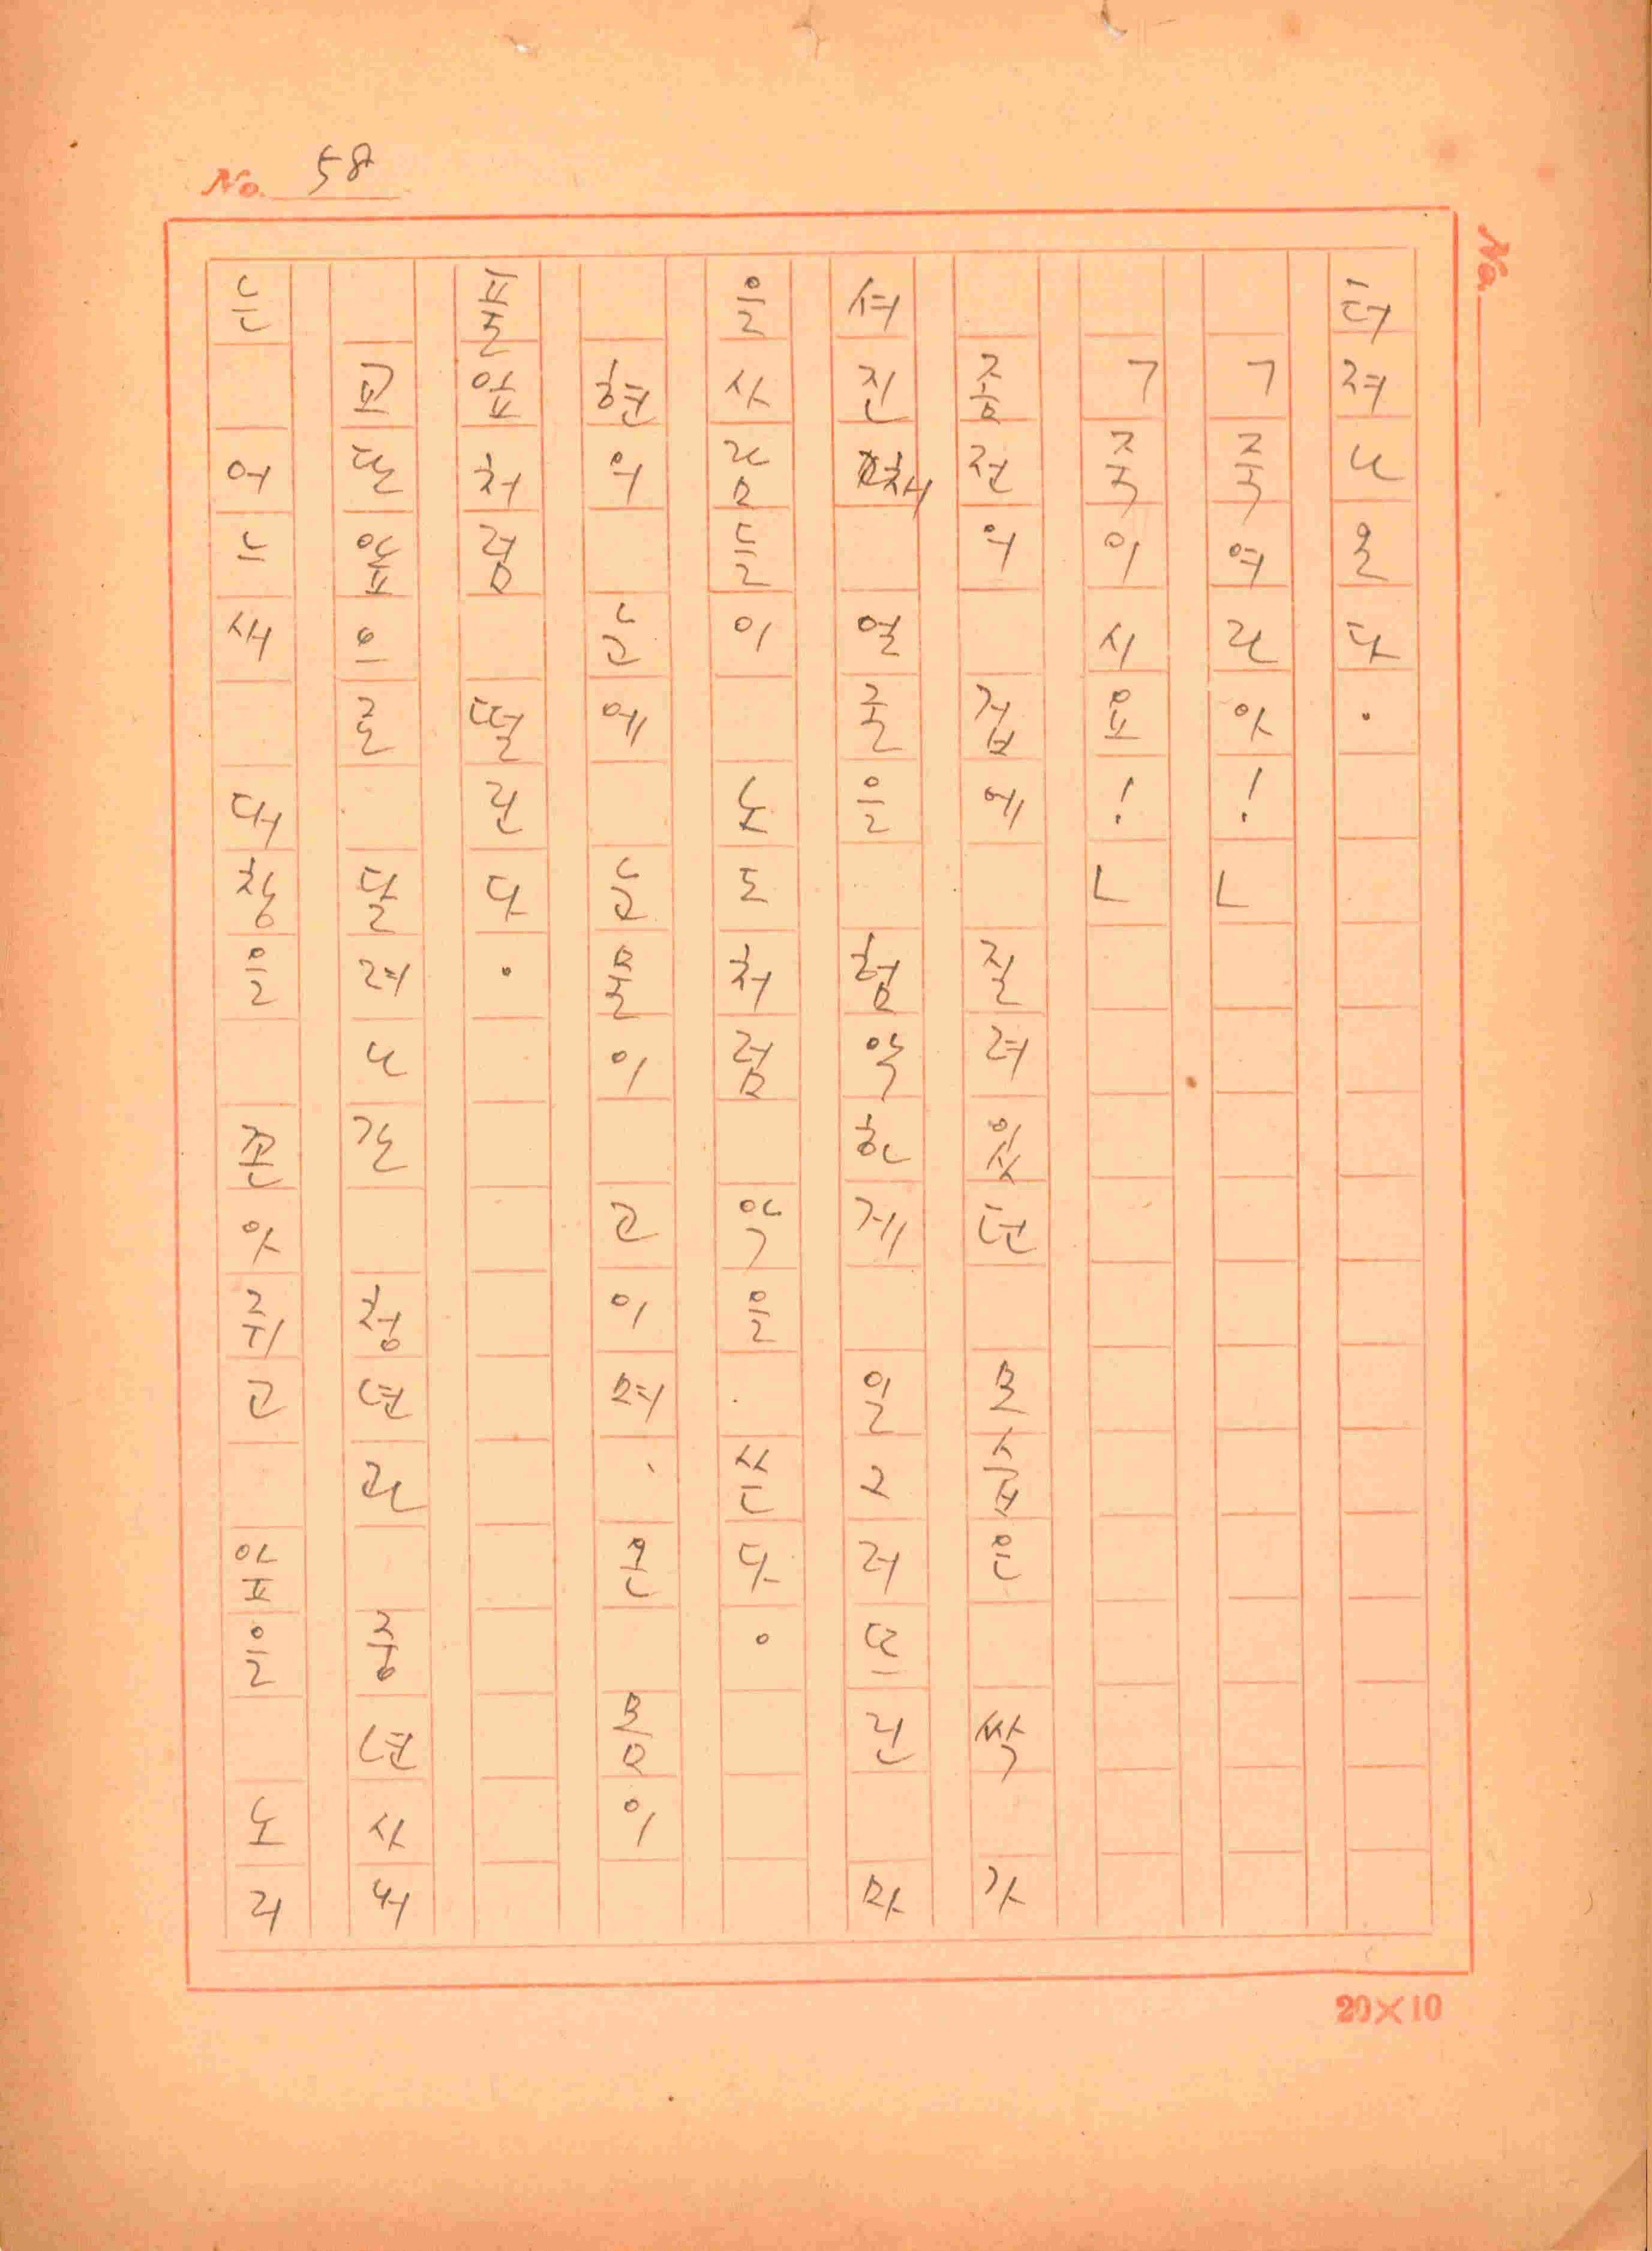 터져나온다.
「죽여라아!」
「죽이시요!」
좀전의 겁에 질려있던 모습은 싹 가
셔진채 얼굴을 험악하게 일그러뜨린 마
을사람들이 악을 쓴다.
현의 눈에 눈물이 고이며, 온 몸이
풀잎처럼 떨린다.
달려나간 청년과 중년사내
는 어느새 대창을 꼰아쥐고 앞을 노려
No. 58
No.
20×10